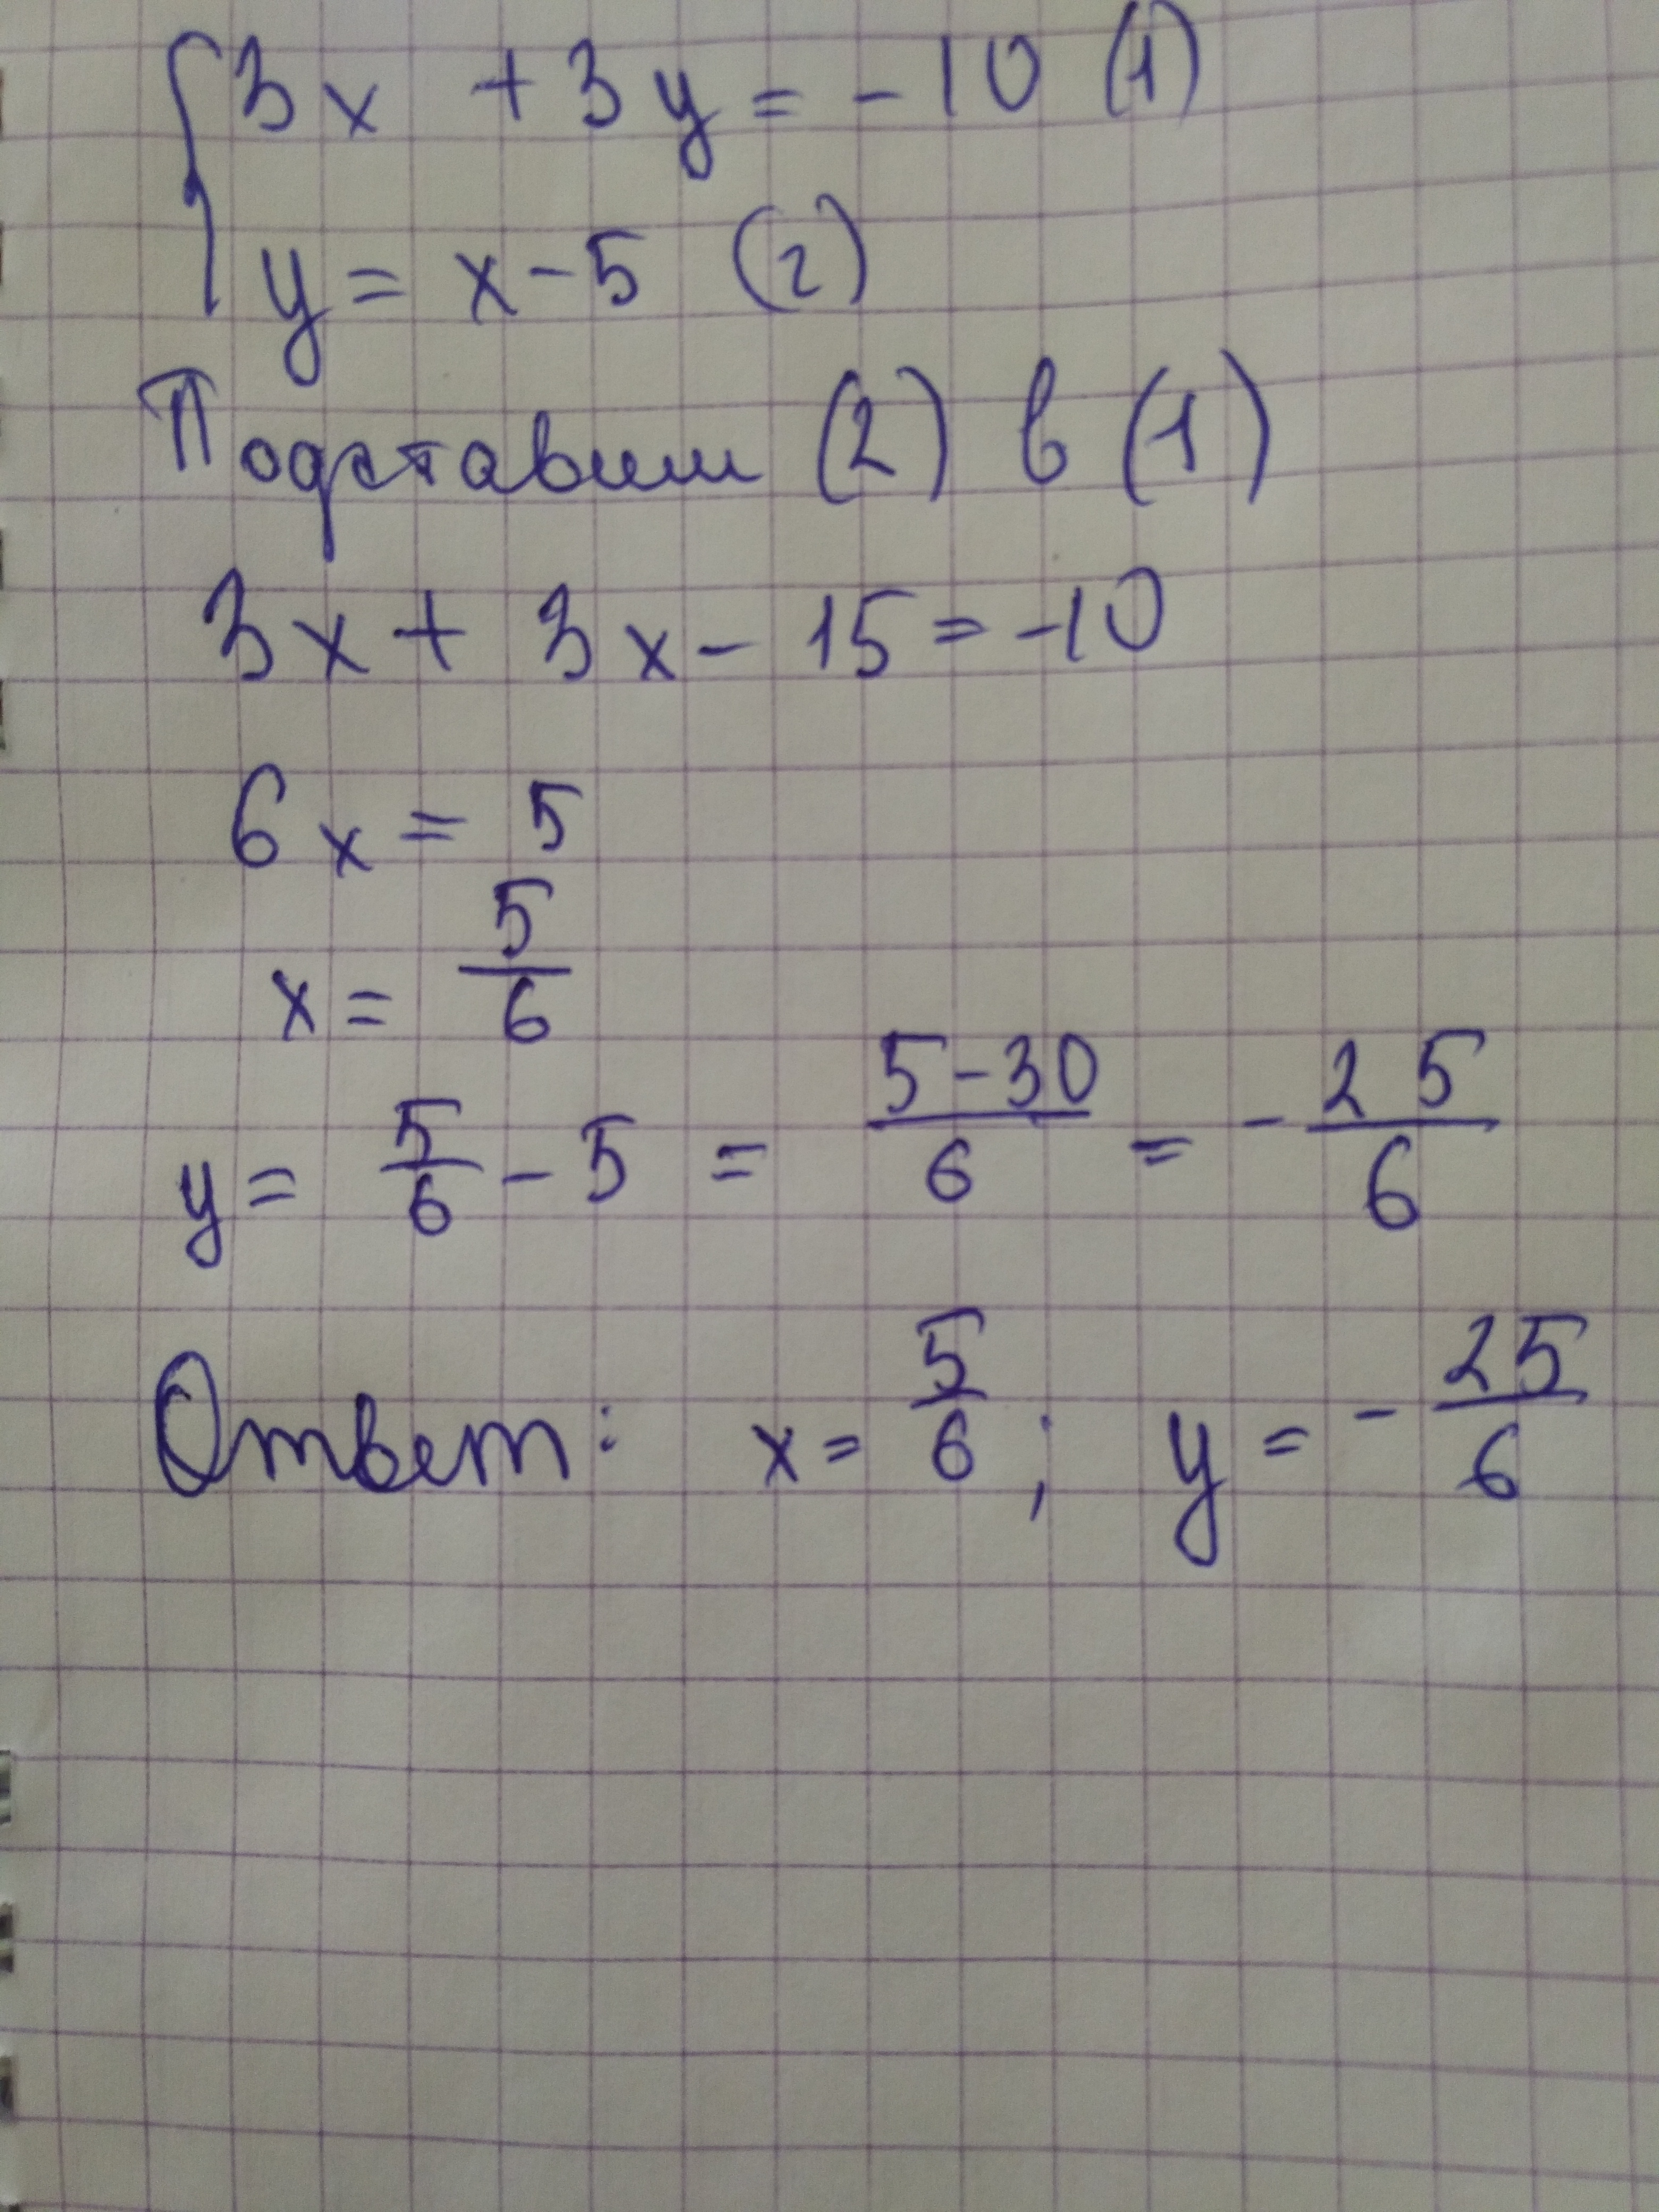 3x + 3y = -10 (1)
y = x - 5 (2)
Подставим (2) в (1)
3x + 3x - 15 = -10
6x = 5
x = 5/6
y = 5/6 - 5 = (5-30)/6 = - 25/6
Ответ: x = 5/6; y = - 25/6